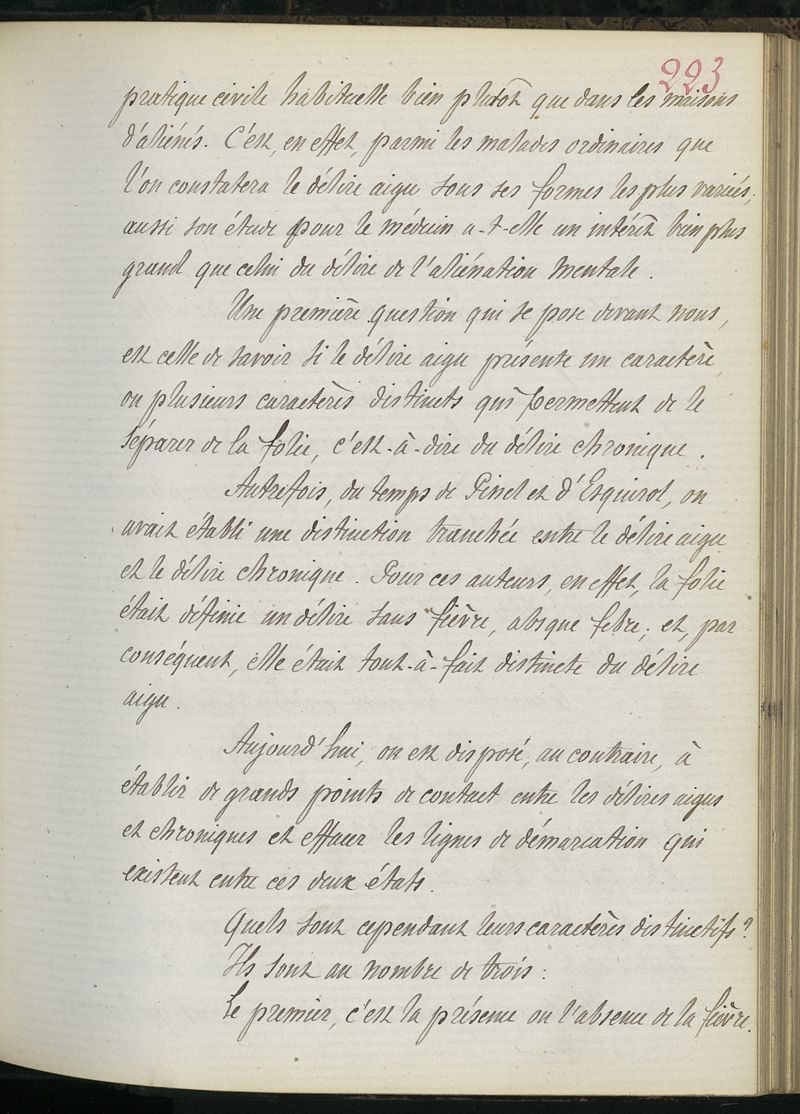 223
pratique civile habituelle bien plutôt que dans les maisons
d'aliénés. C'est, en effet, parmi les malades ordinaires que
l'on constatera le délire aigu sous ses formes les plus variées;
aussi son étude pour le médecin a-t-elle un intérêt bien plus
grand que celui du délire de l'aliénation mentale.
Une première question qui se pose devant nous,
est celle de savoir si le délire aigu présente un caractère,
ou plusieurs caractères distincts qui permettent de le
séparer de la folie, c'est-à-dire du délire chronique.
Autrefois, du temps de Pinel et d'Esquirol, on
avait établi une distinction tranchée entre le délire aigu
et le délire chronique. Pour ces auteurs, en effet, la folie
était définie un délire sans fièvre, absque febre; et, par
conséquent, elle était tout-à-fait distincte du délire
aigu.
Aujourd'hui, on est disposé, au contraire, à
établir de grands points de contact entre les délires aigus
et chroniques et effacer les lignes de démarcation qui
existent entre ces deux états.
Quels sont cependant leurs caractères distinctifs?
Ils sont au nombre de trois:
Le premier, c'est la présence ou l'absence de la fièvre.